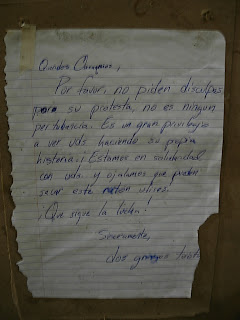 Queridos Compañeros,
Por favor, no piden disculpas
por su protesta, no es ningun
perturbancia. Es un gran privilegio
a ver uds haciendo su propia
historia. ¡Estamos en solidaridad
con uds. y ojalamos que pueden
sacar este ratón utiles!
¡Que sigue la lucha!
Sinceramente,
dos gringos